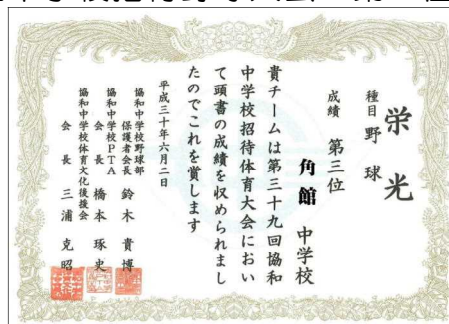 栄光
種目 野球
成績 第三位
角館 中学校
貴チームは第三十九回協和
中学校招待体育大会におい
て頭書の成績を収められまし
たのでこれを賞します
平成三十年六月二日
協和中学校野球部
保護者会長 鈴木貴博
協和中学校PTA
会長 橋本琢史
協和中学校体育文化後援会
会長 三浦克昭